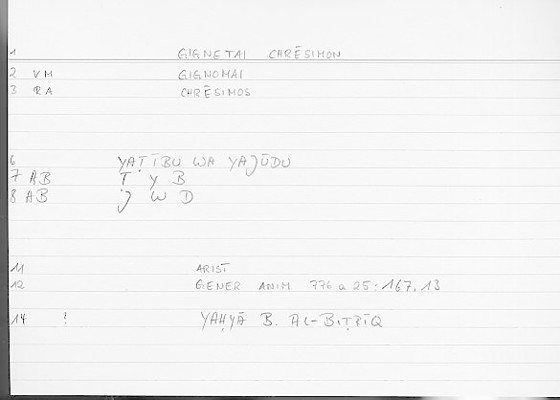 1 GIGNETAI CHRĒSIMON
2 VM GIGNOMAI
3 RA CHRĒSIMOS
6 YAṬĪBU WA YAJŪDU
7 AB Ṭ Y B
8 AB J W D
11 ARIST
12 GENER ANIM 776 a 25 : 167,13
14 ? YAḤYĀ B. AL-BIṬRĪQ